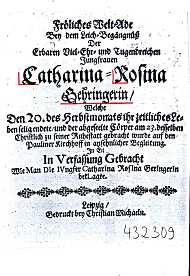 Fröliches Welt-Ade
Bey dem Leich-Begängnüß
Der
Erbaren Viel-Ehr- und Tugendreichen
Jungfrauen
Catharina-Rosina
Gehringerin/
Welche
Den 20. des Herbstmonats ihr zeitliches Le-
ben selig endete/ und der abgeseelte Cörper am 23. desselben
Christlich zu seiner Ruhestatt gebracht wurde auf den
Pauliner Kirchhoff in ansehnlicher Begleitung.
In Verfassung Gebracht
Wie Man Die IVngfer Catharina Rosina Geringerin
bekLagte.
Leipzig/
Gedruckt bey Christian Michaeln.
432309